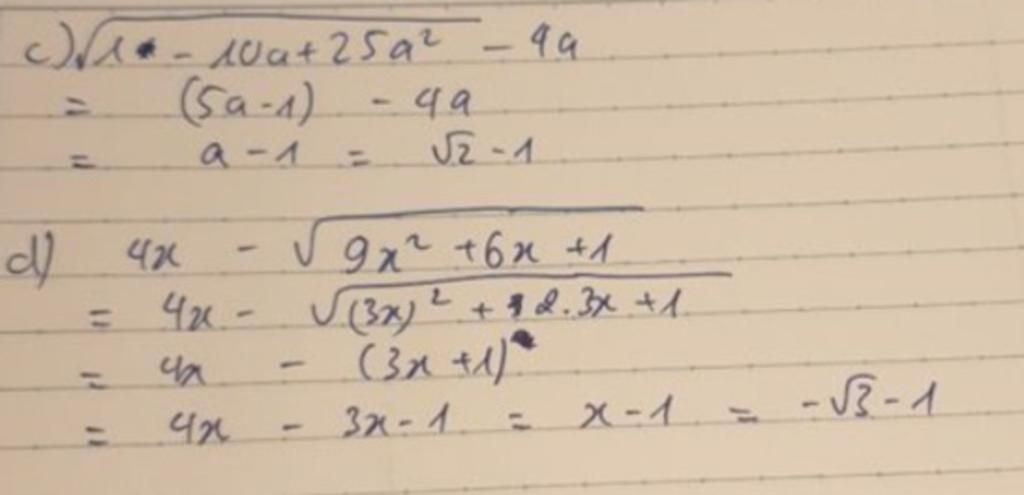 c) √(1 - 10a + 25a²) - 4a
= (5a - 1) - 4a
= a - 1 = √2 - 1
d) 4x - √(9x² + 6x + 1)
= 4x - √((3x)² + 2.3x + 1)
= 4x - (3x + 1)
= 4x - 3x - 1 = x - 1 = -√3 - 1